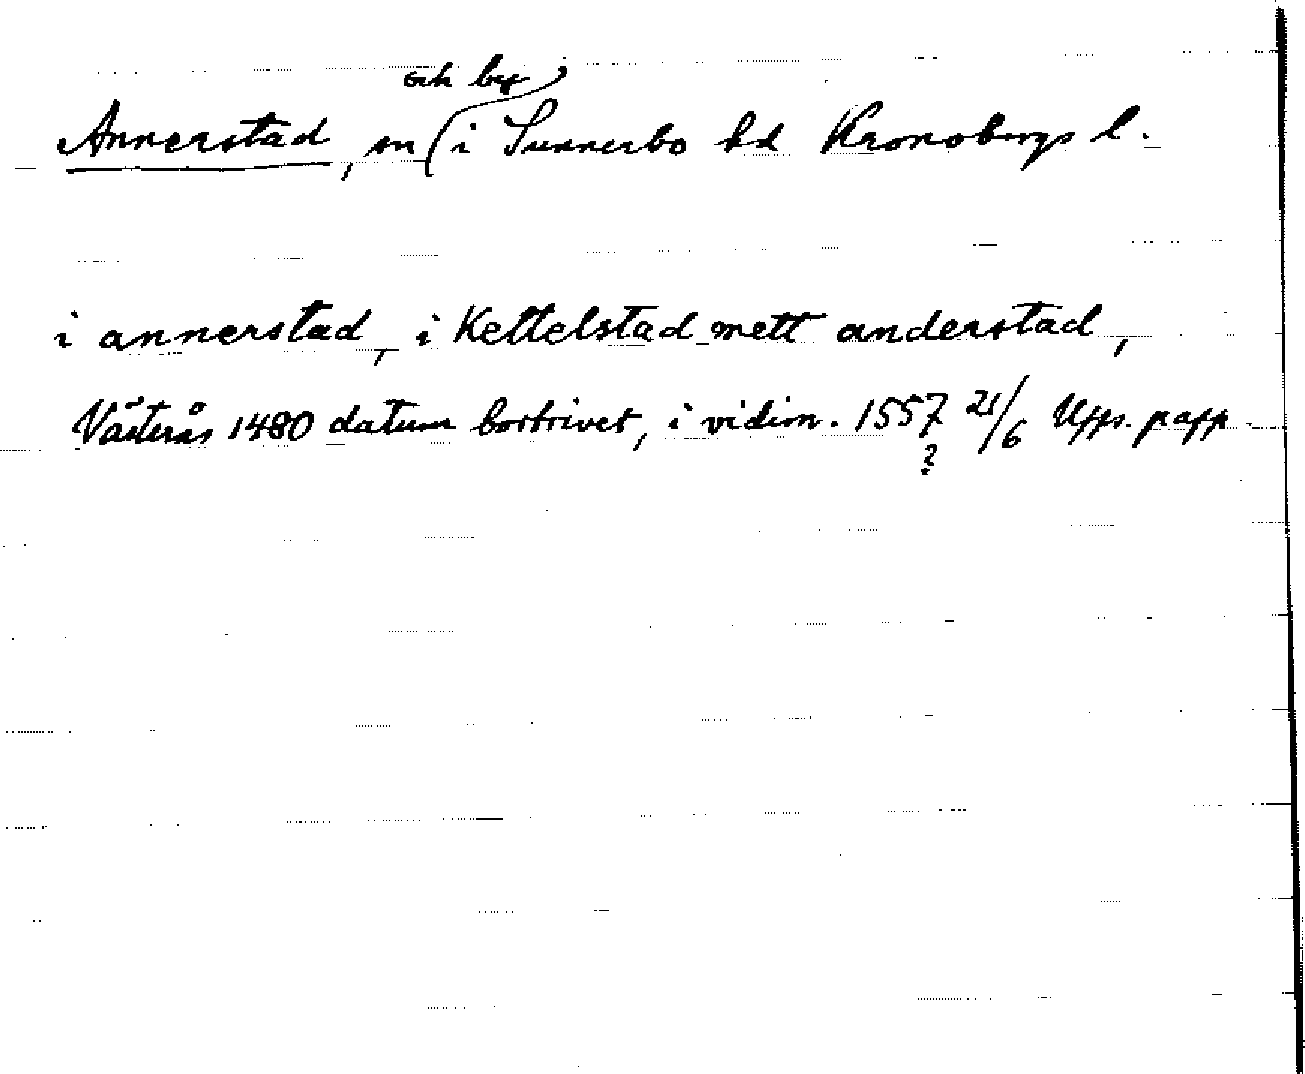 och by
Annerstad, sn i Sunnerbo hd Kronobergs l.
i annerstad, i Kettelstad mett anderstad,
Västerås 1480 datum bortrivet, i vidim. 1557 21/6 Upps. papp
?